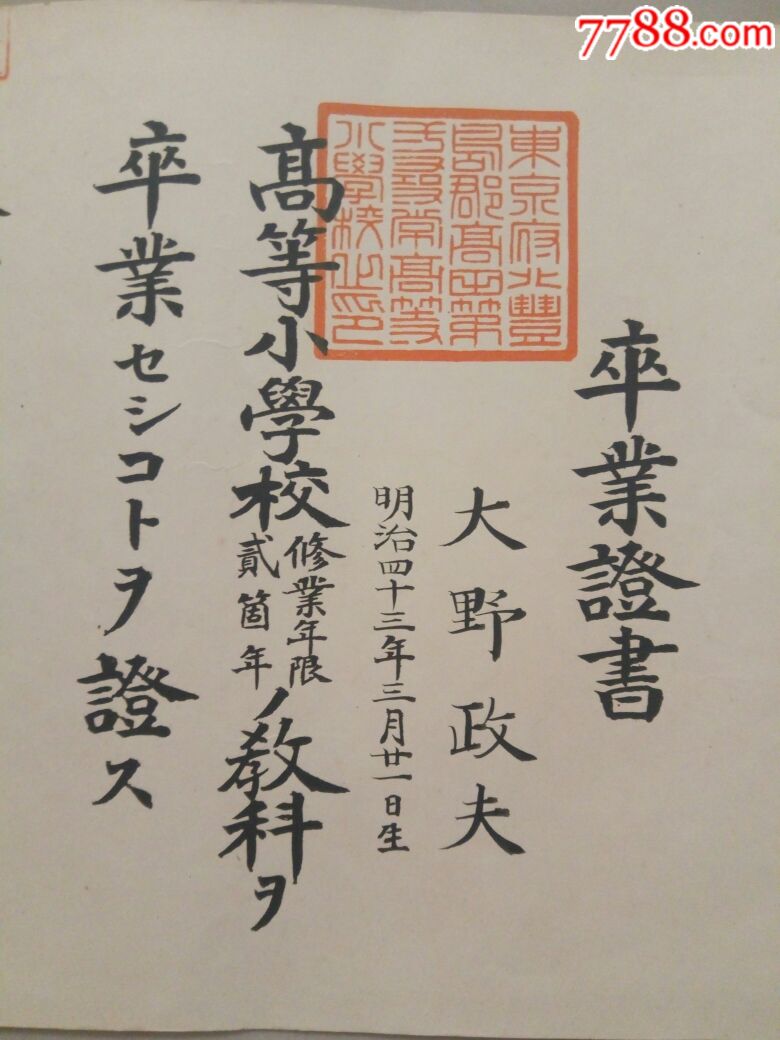 7788.com
卒業證書
東京府北豐
島郡髙田第
五尋常髙等
小學校之印
大野政夫
明治四十三年三月廿一日生
髙等小學校修業年限貳箇年ノ教科ヲ
卒業セシコトヲ證ス